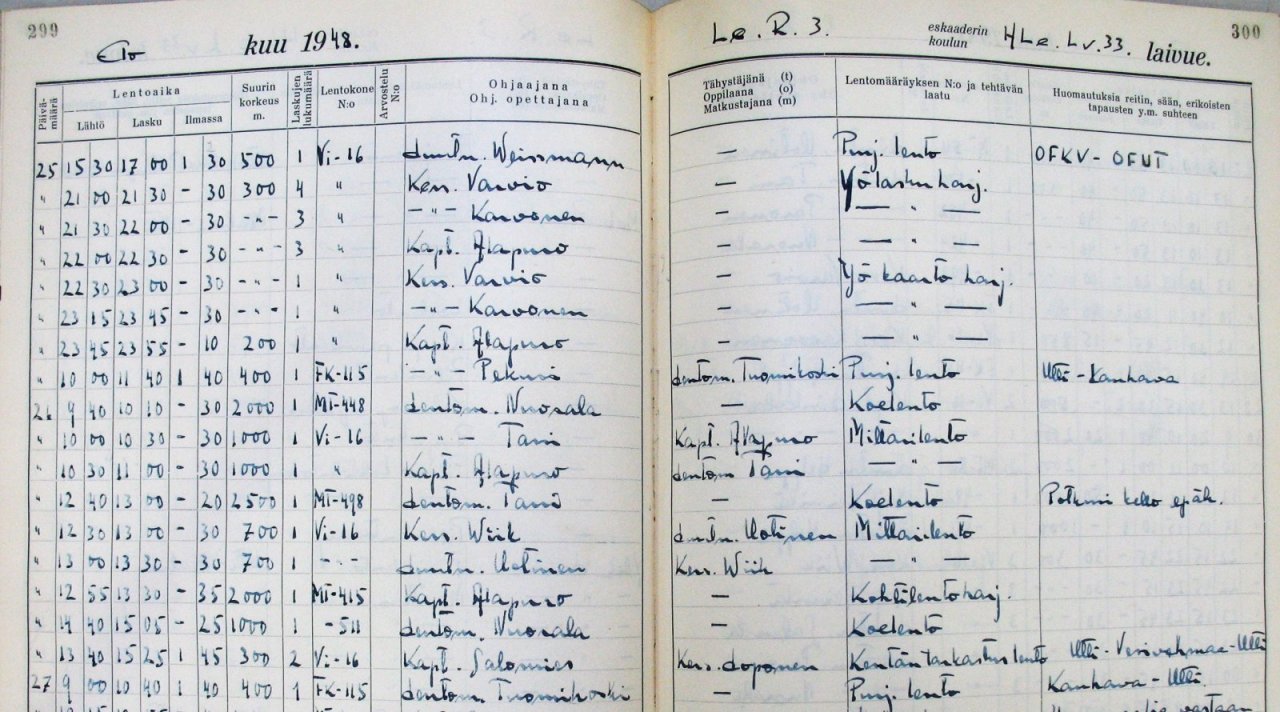 299
Elo kuu 1948.
Le. R. 3. eskaaderin koulun HLe. Lv. 33. laivue.
300
Päivämäärä Lentoaika Lähtö Lasku Ilmassa Suurin korkeus m. Laskujen lukumäärä Lentokone N:o Arvostelu N:o Ohjaajana Ohj. opettajana Tähystäjänä (t) Oppilaana (o) Matkustajana (m) Lentomääräyksen N:o ja tehtävän laatu Huomautuksia reitin, sään, erikoisten tapausten y.m. suhteen
25 15 30 17 00 1 30 500 1 Vi-16 Luutn. Weissmann — Purj. lento OFKV - OFUT
" 21 00 21 30 - 30 300 4 " Kers. Varvio — Yölaskuharj.
" 21 30 22 00 - 30 -"- 3 " -"- Karvonen — — " —
" 22 00 22 30 - 30 -"- 3 " Kapt. Alapuro — — " —
" 22 30 23 00 - 30 -"- 1 " Kers. Varvio — Yö kaartoharj.
" 23 15 23 45 - 30 -"- 1 " -"- Karvonen — — " —
" 23 45 23 55 - 10 200 1 " Kapt. Alapuro — — " —
" 10 00 11 40 1 40 400 1 FK-115 -"- Pekuri Lentom. Tuomikoski Purj. lento Utti - Kauhava
26 9 40 10 10 - 30 2000 1 MT-448 Lentom. Nuorala — Koelento
" 10 00 10 30 - 30 1000 1 Vi-16 -"- Tani Kapt. Alapuro Mittarilento
" 10 30 11 00 - 30 1000 1 " Kapt. Alapuro Lentom Tani — " —
" 12 40 13 00 - 20 2500 1 MT-498 Lentom. Tani — Koelento Potkuri kello epäk.
" 12 30 13 00 - 30 700 1 Vi-16 Kers. Wiik Luutn. Uotinen Mittarilento
" 13 00 13 30 - 30 700 1 -"- Luutn. Uotinen Kers. Wiik — " —
" 12 55 13 30 - 35 2000 1 MT-415 Kapt. Alapuro — Kohtilentoharj.
" 14 40 15 05 - 25 1000 1 -511 Lentom. Nuorala — Koelento
" 13 40 15 25 1 45 300 2 Vi-16 Kapt. Salomies Kers. Loponen Kentäntarkastuslento Utti - Vesivehmaa - Utti
27 9 00 10 40 1 40 400 1 FK-115 Lentom. Tuomikoski — Purj. lento Kauhava - Utti.